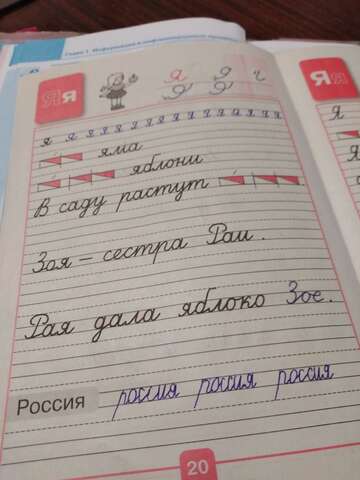 Яя
я Я г
я я я я я я я я я я я я я я я я я
яма
яблони
В саду растут
Зоя – сестра Раи.
Рая дала яблоко Зое.
Россия россия россия россия
20
Яя
Я